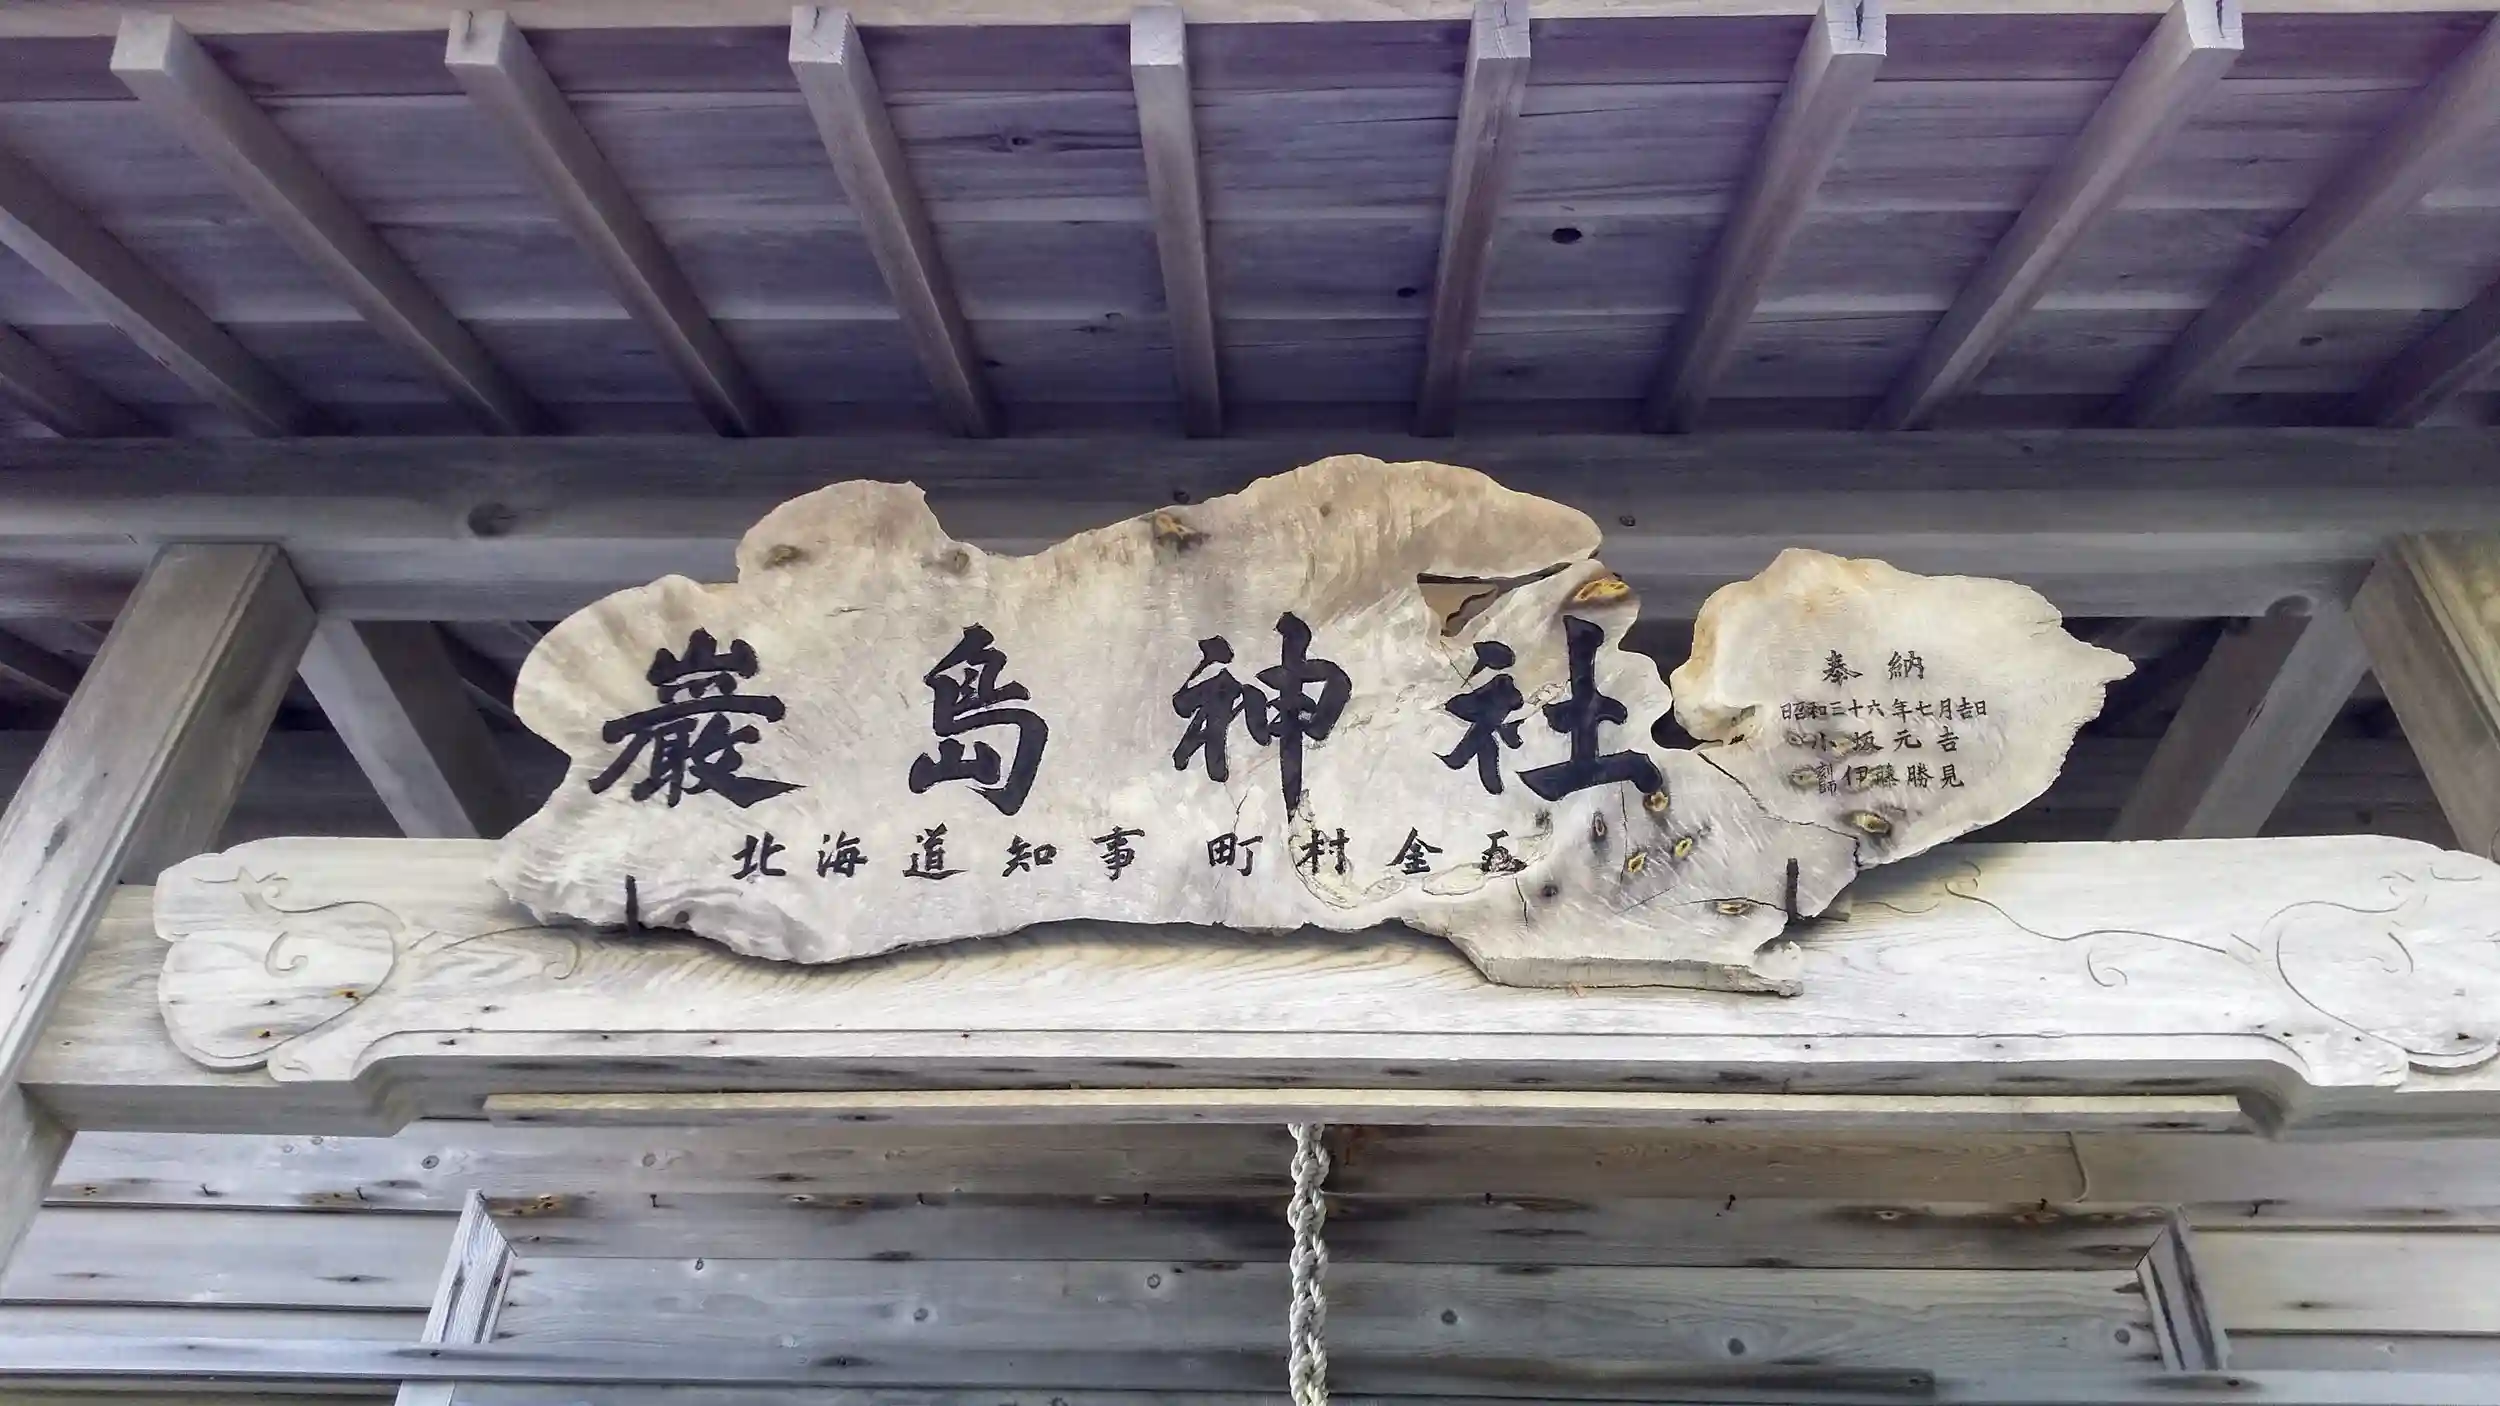 巖島神社
北海道知事 町村金五
奉納
昭和三十六年七月吉日
小坂元吉
彫師 伊藤勝見